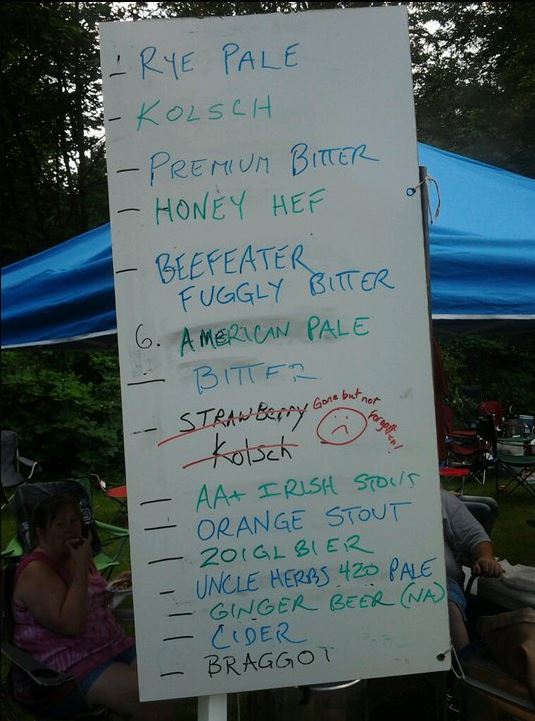 - RYE PALE
- KOLSCH
- PREMIUM BITTER
- HONEY HEF
- BEEFEATER
FUGGLY BITTER
6. AMERICAN PALE
- BITTER
- STRAWBERRY
Kolsch
Gone but not
forgotten!
- AA+ IRISH STOUT
- ORANGE STOUT
- 201GL BIER
- UNCLE HERBS 420 PALE
- GINGER BEER (NA)
- CIDER
- BRAGGOT